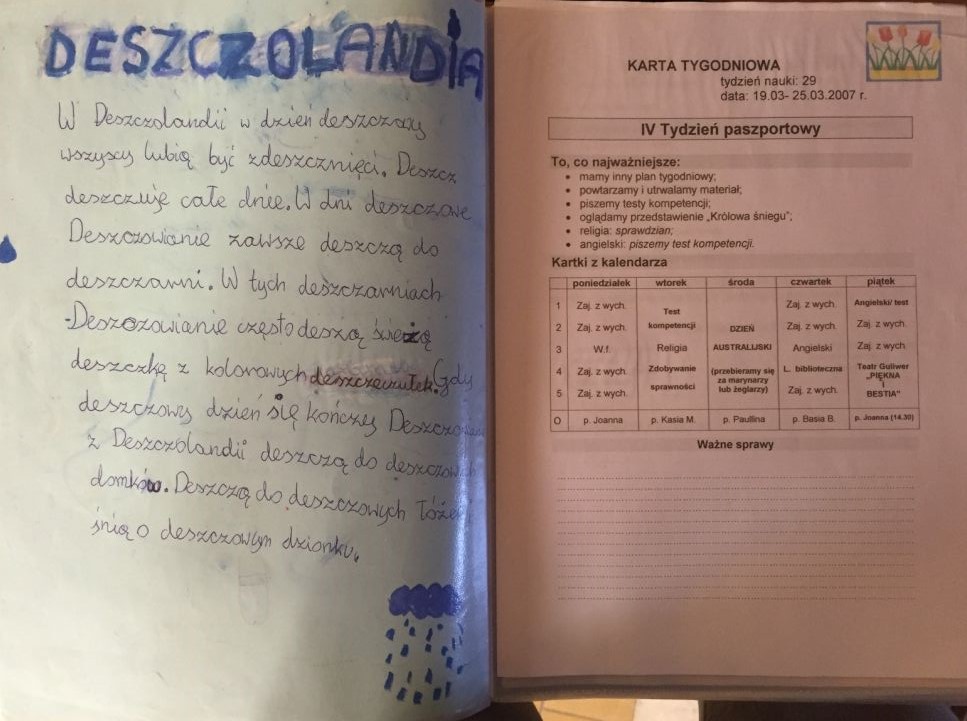 DESZCZOLANDIA
W Deszczolandii w dzień deszczowy
wszyscy lubią być zdeszcznięci. Deszcz
deszczuje całe dnie. W dni deszczowe
Deszczowianie zawsze deszczą do
deszczarni. W tych deszczarniach
-Deszczowianie często deszczą świeżą
deszczkę z kolorowych deszczczułek. Gdy
deszczowy dzień się kończy
z Deszczolandii deszczą do
domków. Deszczą do deszczowych
śnią o deszczowym dzionku.
KARTA TYGODNIOWA
tydzień nauki: 29
data: 19.03- 25.03.2007 r.
IV Tydzień paszportowy
To, co najważniejsze:
• mamy inny plan tygodniowy;
• powtarzamy i utrwalamy materiał;
• piszemy testy kompetencji;
• oglądamy przedstawienie „Królowa śniegu";
• religia: sprawdzian;
• angielski: piszemy test kompetencji.
Kartki z kalendarza
poniedziałek wtorek środa czwartek piątek
1 Zaj. z wych. Test Zaj. z wych. Angielski/ test
2 Zaj. z wych. kompetencji DZIEŃ Zaj. z wych. Zaj. z wych.
3 W.f. Religia AUSTRALIJSKI Angielski Zaj. z wych.
4 Zaj. z wych. Zdobywanie (przebieramy się L. biblioteczna Teatr Guliwer
za marynarzy „PIĘKNA
5 Zaj. z wych. sprawności lub żeglarzy) Zaj. z wych. I
BESTIA"
O p. Joanna p. Kasia M. p. Paulina p. Basia B. p. Joanna (14.30)
Ważne sprawy